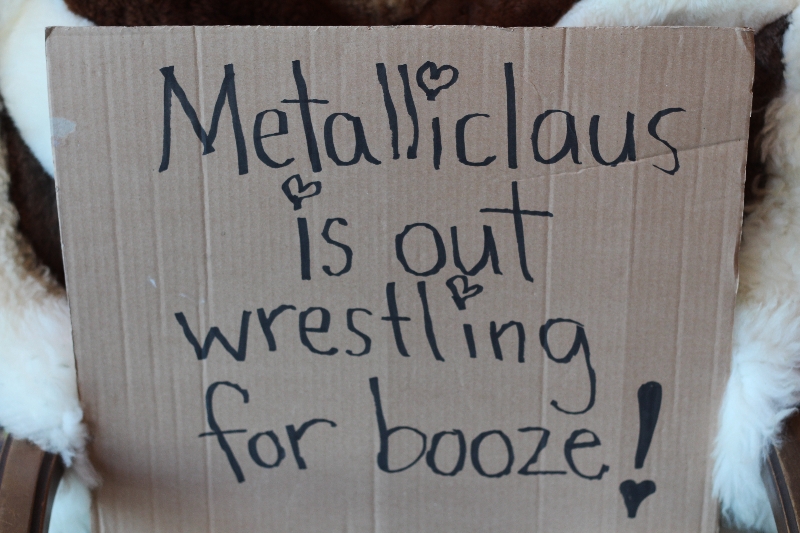 Metalliclaus
is out
wrestling
for booze!